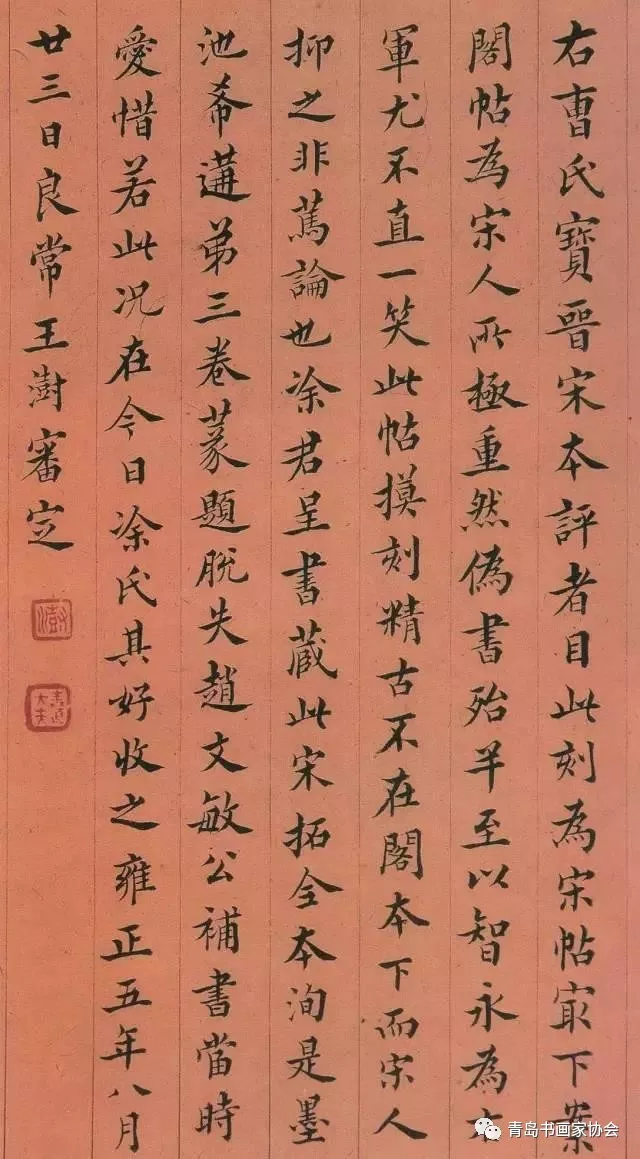 右曹氏寶晉宋本評者目此刻為宋帖冣下案
閣帖為宋人所極重然偽書殆半至以智永為右
軍尤不直一笑此帖摸刻精古不在閣本下而宋人
抑之非篤論也涂君呈書蔵此宋拓全本洵是墨
池希遘弟三卷篆題脫失趙文敏公補書當時
愛惜若此况在今日涂氏其好收之雍正五年八月
廿三日良常王澍審定
澍
青岛书画家协会